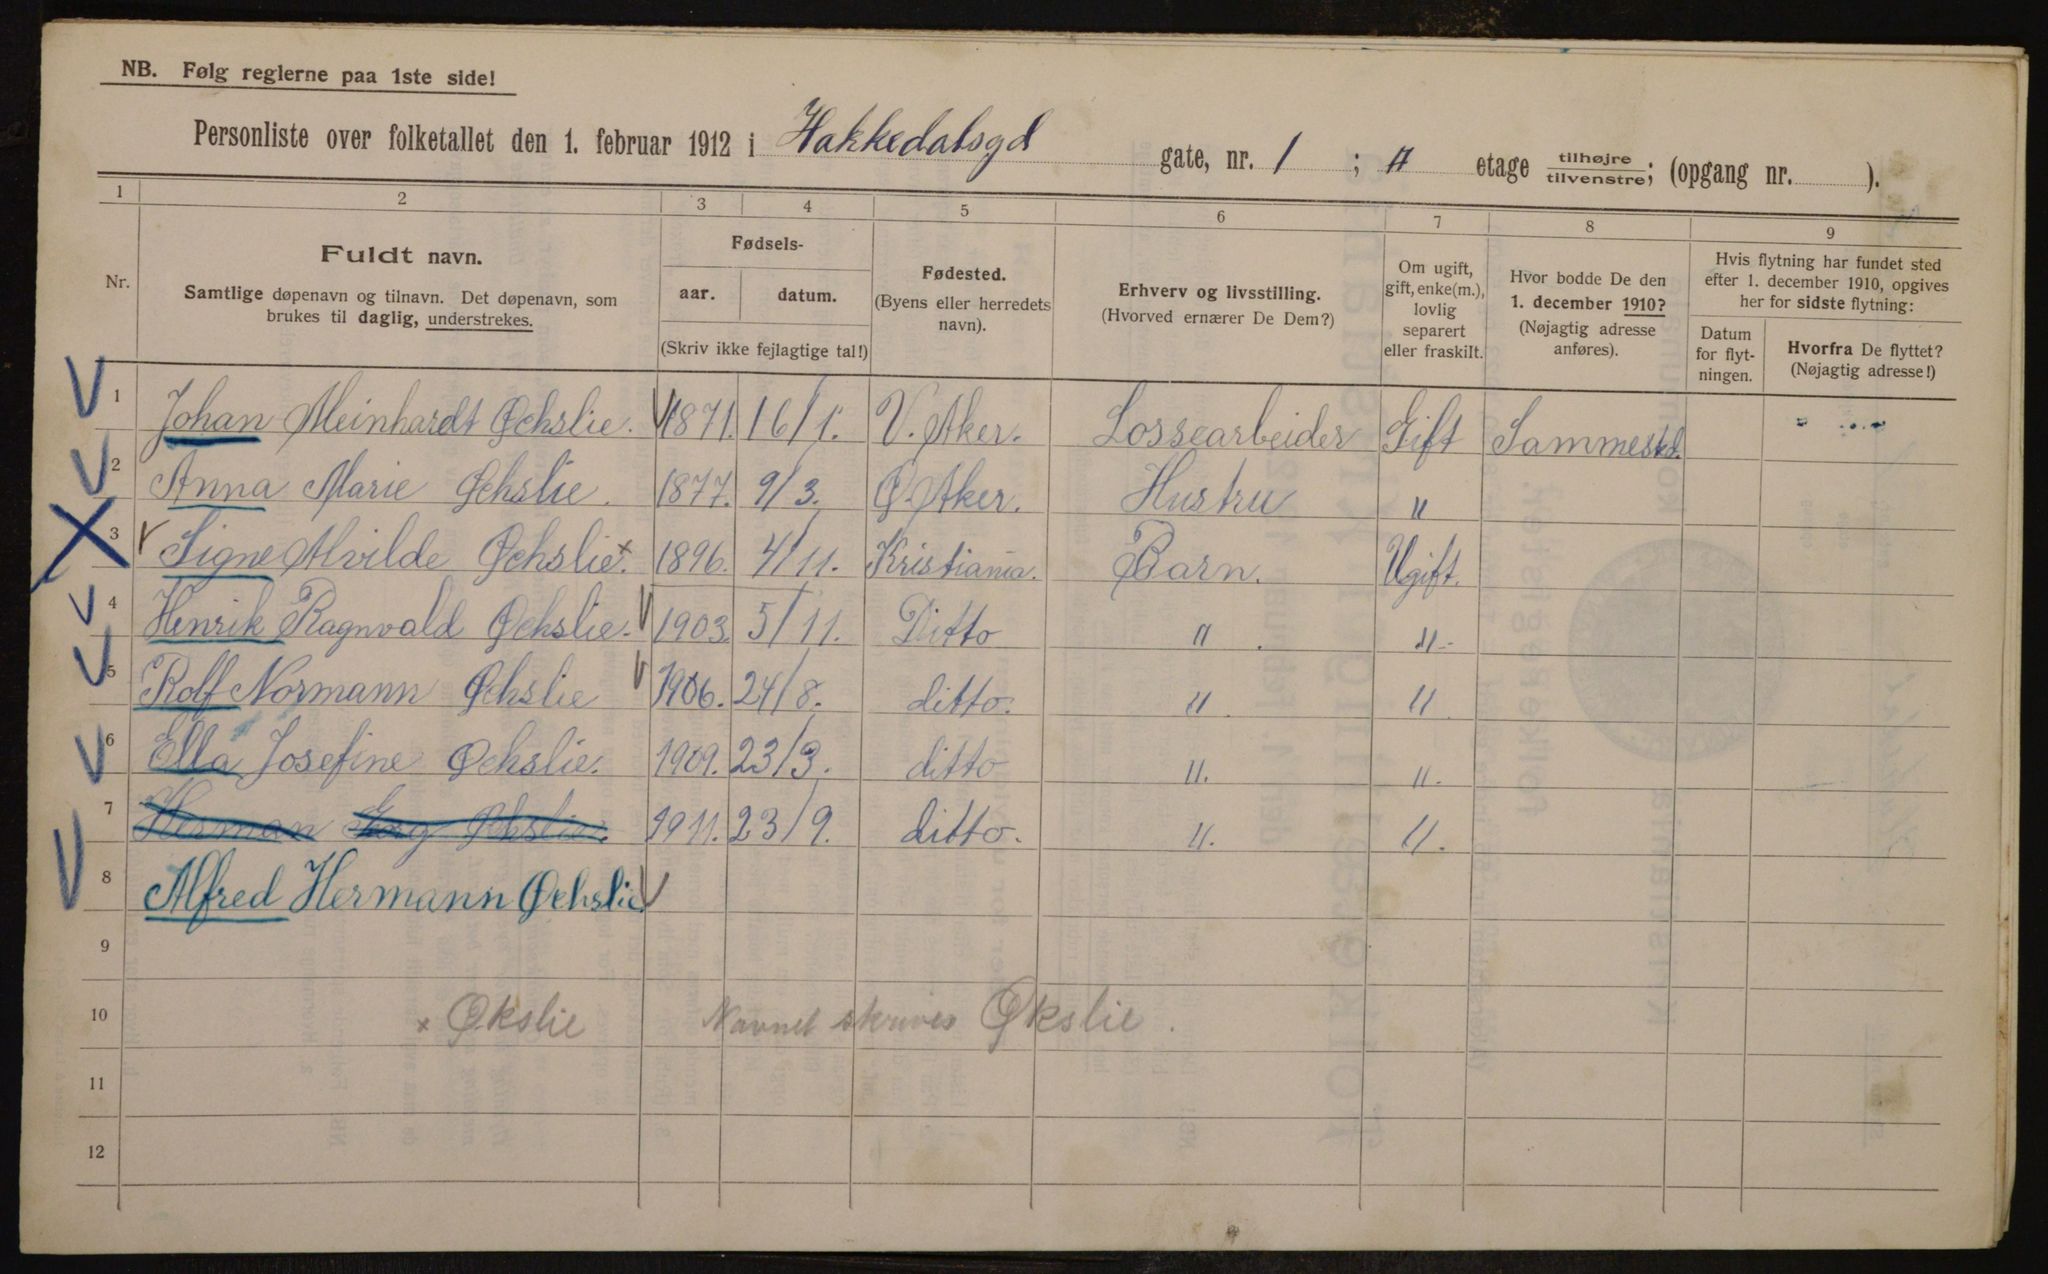 NB. Følg reglerne paa 1ste side!
Personliste over folketallet den 1. februar 1912 i Hakkedalsgd gate, nr. 1 ; II etage tilhøjre/tilvenstre; (opgang nr. ).
1 2 3 4 5 6 7 8 9
Nr.
Fuldt navn.
Samtlige døpenavn og tilnavn. Det døpenavn, som
brukes til daglig, understrekes.
Fødsels-
aar. datum.
(Skriv ikke fejlagtige tal!)
Fødested.
(Byens eller herredets
navn).
Erhverv og livsstilling.
(Hvorved ernærer De Dem?)
Om ugift,
gift, enke(m.),
lovlig
separert
eller fraskilt.
Hvor bodde De den
1. december 1910?
(Nøjagtig adresse
anføres).
Hvis flytning har fundet sted
efter 1. december 1910, opgives
her for sidste flytning:
Datum
for flyt-
ningen.
Hvorfra De flyttet?
(Nøjagtig adresse!)
1 Johan Meinhardt Øchslie. 1871. 16/1. V. Aker. Lossearbeider Gift Sammestd.
2 Anna Marie Øchslie. 1877. 9/3. Ø. Aker. Hustru "
3 Signe Alvilde Øchslie. x 1896. 4/11. Kristiania. Barn. Ugift.
4 Henrik Ragnvald Øchslie. 1903. 5/11. Ditto " "
5 Rolf Normann Øchslie 1906. 24/8. ditto. " "
6 Ella Josefine Øchslie. 1909. 23/3. ditto " "
7 Herman Georg Øchslie. 1911. 23/9. ditto. " "
8 Alfred Hermann Øchslie
9
10 x Økslie Navnet skrives Økslie.
11
12